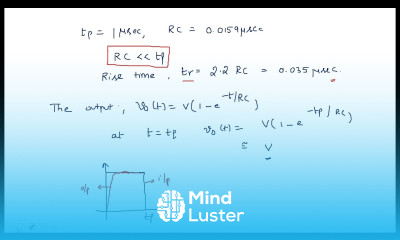 tp = 1 μsec, RC = 0.0159 μsec
RC << tp
Rise time, tr = 2.2 RC = 0.035 μsec.
The output, v₀(t) = V(1 - e^{-t/RC})
at t = tp v₀(t) = V(1 - e^{-tp/RC})
≅ V
o/p
i/p
tp
Mind
Luster